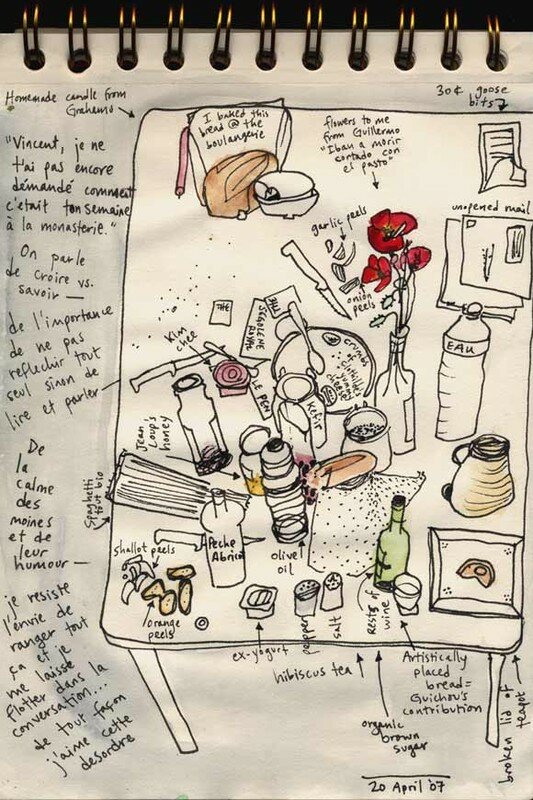 Homemade candle from
Grahame
"Vincent, je ne
t'ai pas encore
démandé comment
c'etait ton semaine
à la monasterie."
On parle
de croire vs.
savoir —
de l'importance
de ne pas
reflechir tout
seul sinon de
lire et parler
De
la
calme
des
moines
et de
leur
humour —
je resiste
l'envie de
ranger tout
ça et je
me laisse
flotter dans la
conversation...
de tout façon
j'aime cette
desordre
I baked this
bread @ the
boulangerie
flowers to me
from Guillermo
"Iban a morir
cortado con
es pasto"
30¢ goose
bits
unopened mail
garlic peels
onion
peels
THE
THE
SEGOLENE
ROYAL
LE PEN
Kim
chee
crumbs
of
yummy
cheese
Kefir
EAU
Jean
Loup's
honey
Spaghetti
tout bio
Pêche
Abricot
olive
oil
shallot peels
orange
peels
ex-yogurt
pepper
salt
Rests of
wine
hibiscus tea
organic
brown
sugar
Artistically
placed
bread =
Guichou's
contribution
broken lid of
teapot
20 April '07